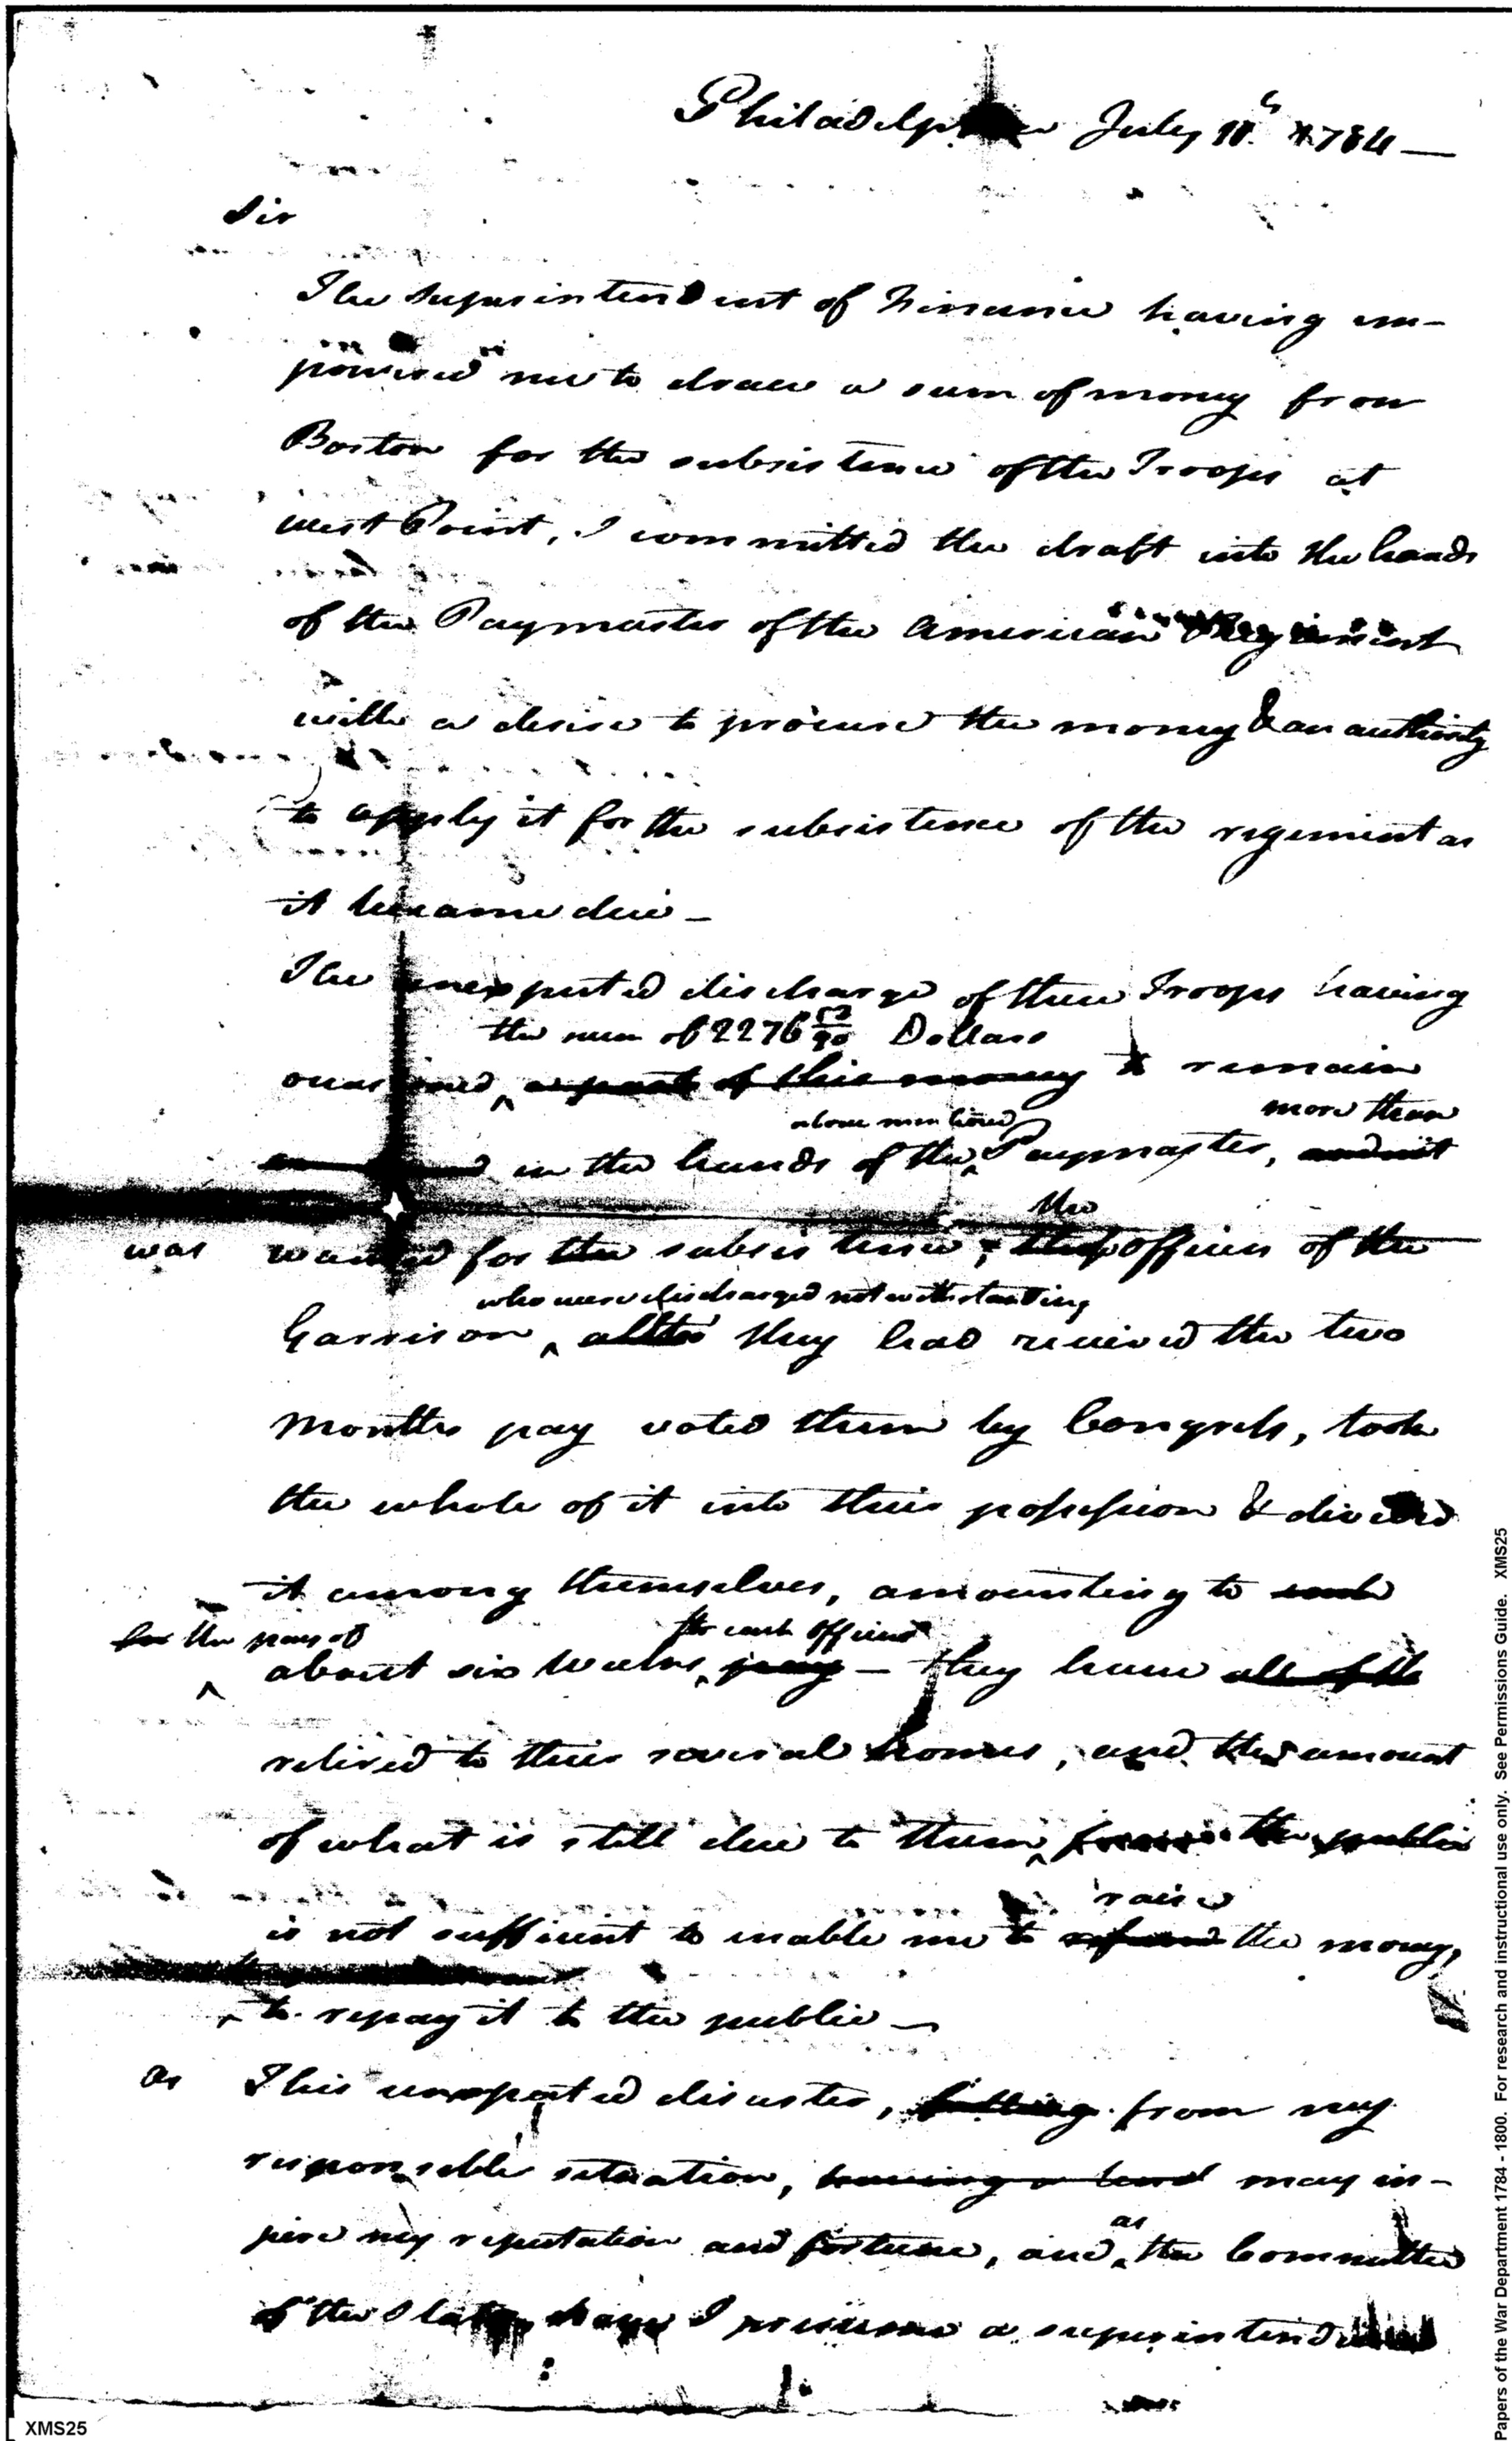 Philadelphia July 11th 1784 —
Sir
The Superintendent of Finance having em-
powered me to draw a sum of money from
Boston for the subsistence of the Troops at
West Point, I committed the draft into the hands
of the Paymaster of the American Regiment
with a desire to procure the money & an authority
to apply it for the subsistence of the regiment as
it became due —
The unexpected discharge of these Troops having
the sum of 2276 53/90 Dollars
occasioned a part of this money to remain
above mentioned more than
in the hands of the Paymaster, and not
the
was wanted for the subsistence, officers of the
who were discharged notwithstanding
Garrison, altho they had received the two
months pay voted them by Congress, took
the whole of it into their possession & divided
it among themselves, amounting to each
for the pay of for each officer
about six weeks pay — they have all of th
retired to their several homes, and the amount
of what is still due to them from the public
raise
is not sufficient to enable me to refund the money,
to repay it to the public —
as This unexpected disaster, from my
responsible situation, having a tend may in-
jure my reputation and fortune, and
as
the Committee
of the States have I presume a superintend
XMS25
Papers of the War Department 1784 - 1800. For research and instructional use only. See Permissions Guide. XMS25